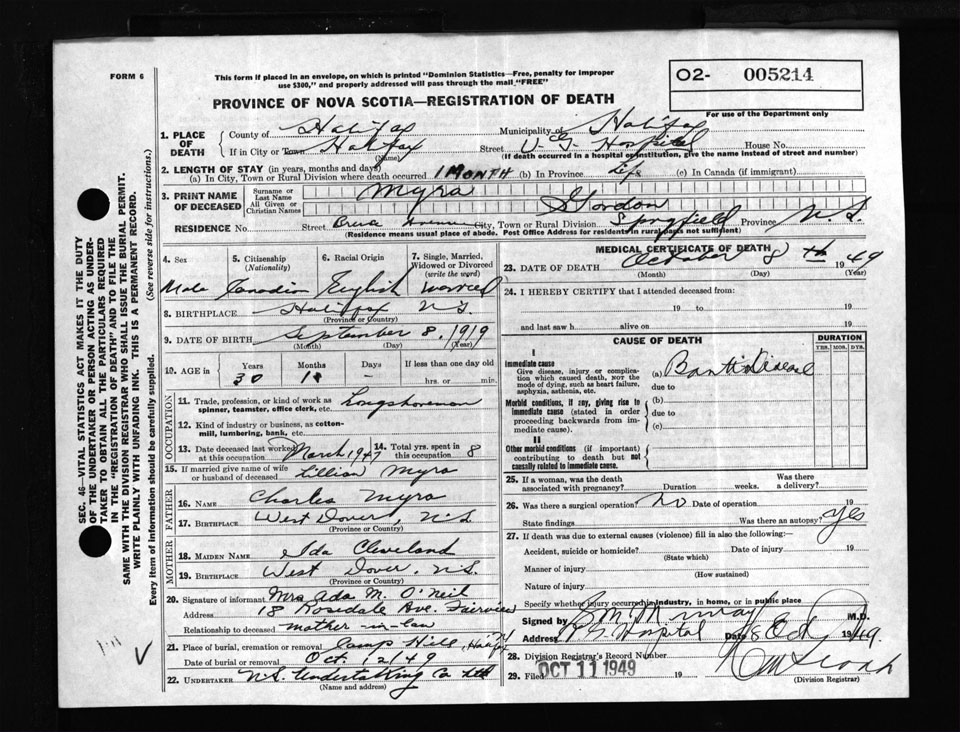 FORM 6
This form if placed in an envelope, on which is printed "Dominion Statistics—Free, penalty for improper
use $300," and properly addressed will pass through the mail "FREE"
O2- 005214
PROVINCE OF NOVA SCOTIA—REGISTRATION OF DEATH
For use of the Department only
1. PLACE OF DEATH
County of Halifax Municipality of Halifax
If in City or Town Halifax Street V. G. Hospital House No.
(Name) (If death occurred in a hospital or institution, give the name instead of street and number)
2. LENGTH OF STAY (in years, months and days)
(a) In City, Town or Rural Division where death occurred 1 MONTH (b) In Province Life (c) In Canada (if immigrant)
3. PRINT NAME OF DECEASED
Surname or Last Name Myra
All Given or Christian Names Gordon
RESIDENCE No. Street City, Town or Rural Division Province N. S.
(Residence means usual place of abode. Post Office Address for residents in rural parts not sufficient)
4. Sex Male
5. Citizenship (Nationality) Canadian
6. Racial Origin English
7. Single, Married, Widowed or Divorced (write the word) Married
8. BIRTHPLACE Halifax N S.
(Province or Country)
9. DATE OF BIRTH September 8, 1919
(Month) (Day) (Year)
10. AGE in Years Months Days If less than one day old
30 1 hrs. or min.
OCCUPATION
11. Trade, profession, or kind of work as spinner, teamster, office clerk, etc. Longshoreman
12. Kind of industry or business, as cotton-mill, lumbering, bank, etc.
13. Date deceased last worked at this occupation March 1947
14. Total yrs. spent in this occupation 8
15. If married give name of wife or husband of deceased Lillian Myra
FATHER
16. NAME Charles Myra
17. BIRTHPLACE West Dover, N.S.
(Province or Country)
MOTHER
18. MAIDEN NAME Ida Cleveland
19. BIRTHPLACE West Dover, N.S.
(Province or Country)
20. Signature of informant Mrs Ada M. O'Neil
Address 18 Rosedale Ave. Fairview
Relationship to deceased mother-in-law
21. Place of burial, cremation or removal Camp Hill, Halifax
Date of burial or removal Oct. 12/49
22. UNDERTAKER N.S. Undertaking Co Ltd
(Name and address)
MEDICAL CERTIFICATE OF DEATH
23. DATE OF DEATH October 8th 1949
(Month) (Day) (Year)
24. I HEREBY CERTIFY that I attended deceased from:
19 to 19
and last saw h alive on 19
CAUSE OF DEATH
DURATION
YRS. MOS. DYS.
I
Immediate cause
Give disease, injury or complication which caused death, not the mode of dying, such as heart failure, asphyxia, asthenia, etc.
(a) Banti's Disease
due to
Morbid conditions, if any, giving rise to immediate cause (stated in order proceeding backwards from immediate cause).
(b)
due to
(c)
II
Other morbid conditions (if important) contributing to death but not causally related to immediate cause.
25. If a woman, was the death associated with pregnancy? Duration weeks. Was there a delivery?
26. Was there a surgical operation? No Date of operation 19
State findings Was there an autopsy? Yes
27. If death was due to external causes (violence) fill in also the following:
Accident, suicide or homicide? Date of injury 19
(State which)
Manner of injury
(How sustained)
Nature of injury
Specify whether injury occurred in industry, in home, or in public place
Signed by M.D.
Address V. G. Hospital Date 8 Oct 1949.
28. Division Registrar's Record Number
29. Filed OCT 11 1949 19
(Division Registrar)
SEC. 46—VITAL STATISTICS ACT MAKES IT THE DUTY
OF THE UNDERTAKER OR PERSON ACTING AS UNDER-
TAKER TO OBTAIN ALL THE PARTICULARS REQUIRED
IN THE "REGISTRATION OF DEATH" AND TO FILE THE
SAME WITH THE DIVISION REGISTRAR WHO SHALL ISSUE THE BURIAL PERMIT.
WRITE PLAINLY WITH UNFADING INK. THIS IS A PERMANENT RECORD.
Every item of information should be carefully supplied. (See reverse side for instructions.)